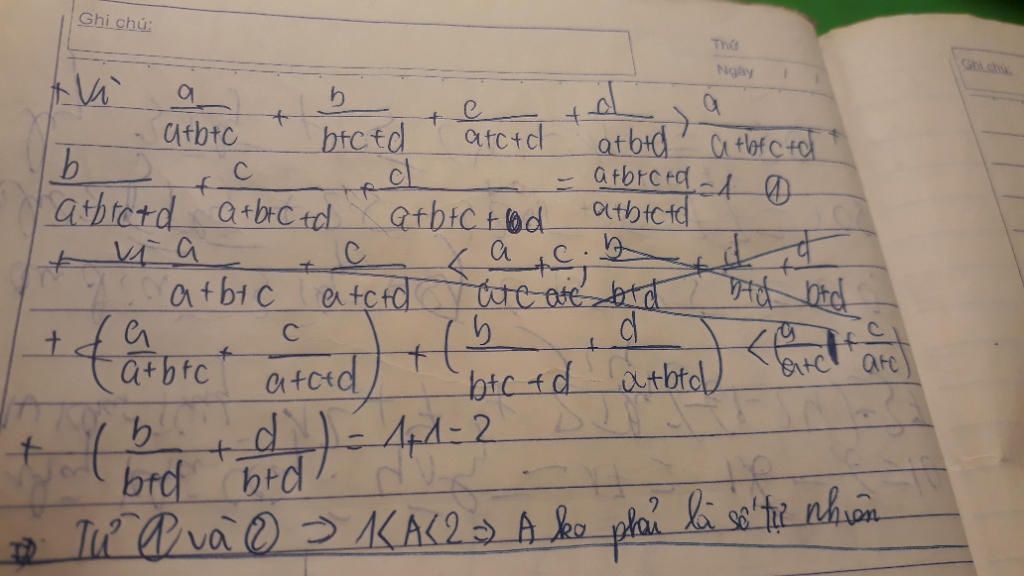 Ghi chú:
Thứ
Ngày / /
Ghi chú:
+ Vì a/(a+b+c) + b/(b+c+d) + c/(a+c+d) + d/(a+b+d) > a/(a+b+c+d) +
b/(a+b+c+d) + c/(a+b+c+d) + d/(a+b+c+d) = (a+b+c+d)/(a+b+c+d) = 1 ①
+ Vì a/(a+b+c) + c/(a+c+d) < a/(a+c) + c/(a+c); b/(b+d) + d/(b+d) + d/(b+d)
+ (a/(a+b+c) + c/(a+c+d)) + (b/(b+c+d) + d/(a+b+d)) < (a/(a+c) + c/(a+c))
+ (b/(b+d) + d/(b+d)) = 1+1=2
=> Từ ① và ② => 1<A<2 => A ko phải là số tự nhiên